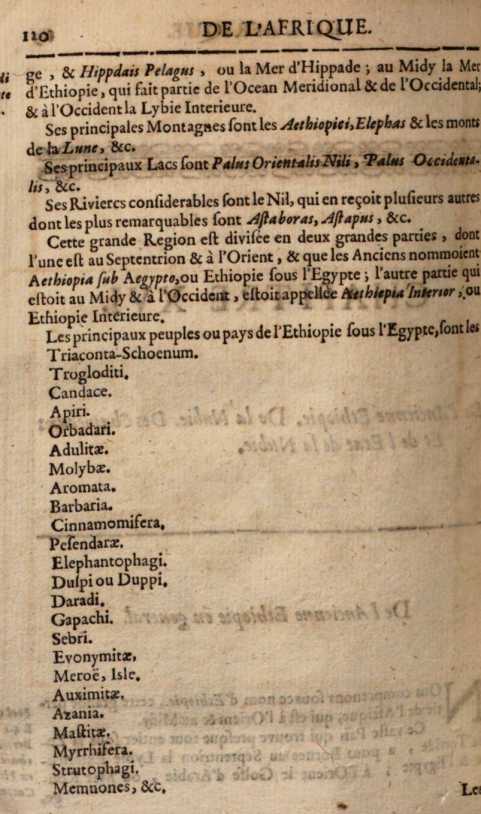 120 DE L'AFRIQUE.
ge, & Hippdais Pelagus, ou la Mer d'Hippade; au Midy la Mer
d'Ethiopie, qui fait partie de l'Ocean Meridional & de l'Occidental;
& à l'Occident la Lybie Interieure.
Ses principales Montagnes sont les Aethiopici, Elephas & les monts
de la Lune, &c.
Ses principaux Lacs sont Palus Orientalis Nili, Palus Occidenta-
lis, &c.
Ses Rivieres considerables sont le Nil, qui en reçoit plusieurs autres
dont les plus remarquables sont Astaboras, Astapus, &c.
Cette grande Region est divisée en deux grandes parties, dont
l'une est au Septentrion & à l'Orient, & que les Anciens nommoient
Aethiopia sub Aegypto, ou Ethiopie sous l'Egypte; l'autre partie qui
estoit au Midy & à l'Occident, estoit appellée Aethiepia Interior, ou
Ethiopie Interieure.
Les principaux peuples ou pays de l'Ethiopie sous l'Egypte, sont les
Triaconta-Schoenum.
Trogloditi.
Candace.
Apiri.
Orbadari.
Adulitæ.
Molybæ.
Aromata.
Barbaria.
Cinnamomifera.
Pesendaræ.
Elephantophagi.
Duspi ou Duppi.
Daradi.
Gapachi.
Sebri.
Evonymitæ.
Meroë, Isle.
Auximitæ.
Azania.
Mastitæ.
Myrrhifera.
Strutophagi.
Memnones, &c.
Les